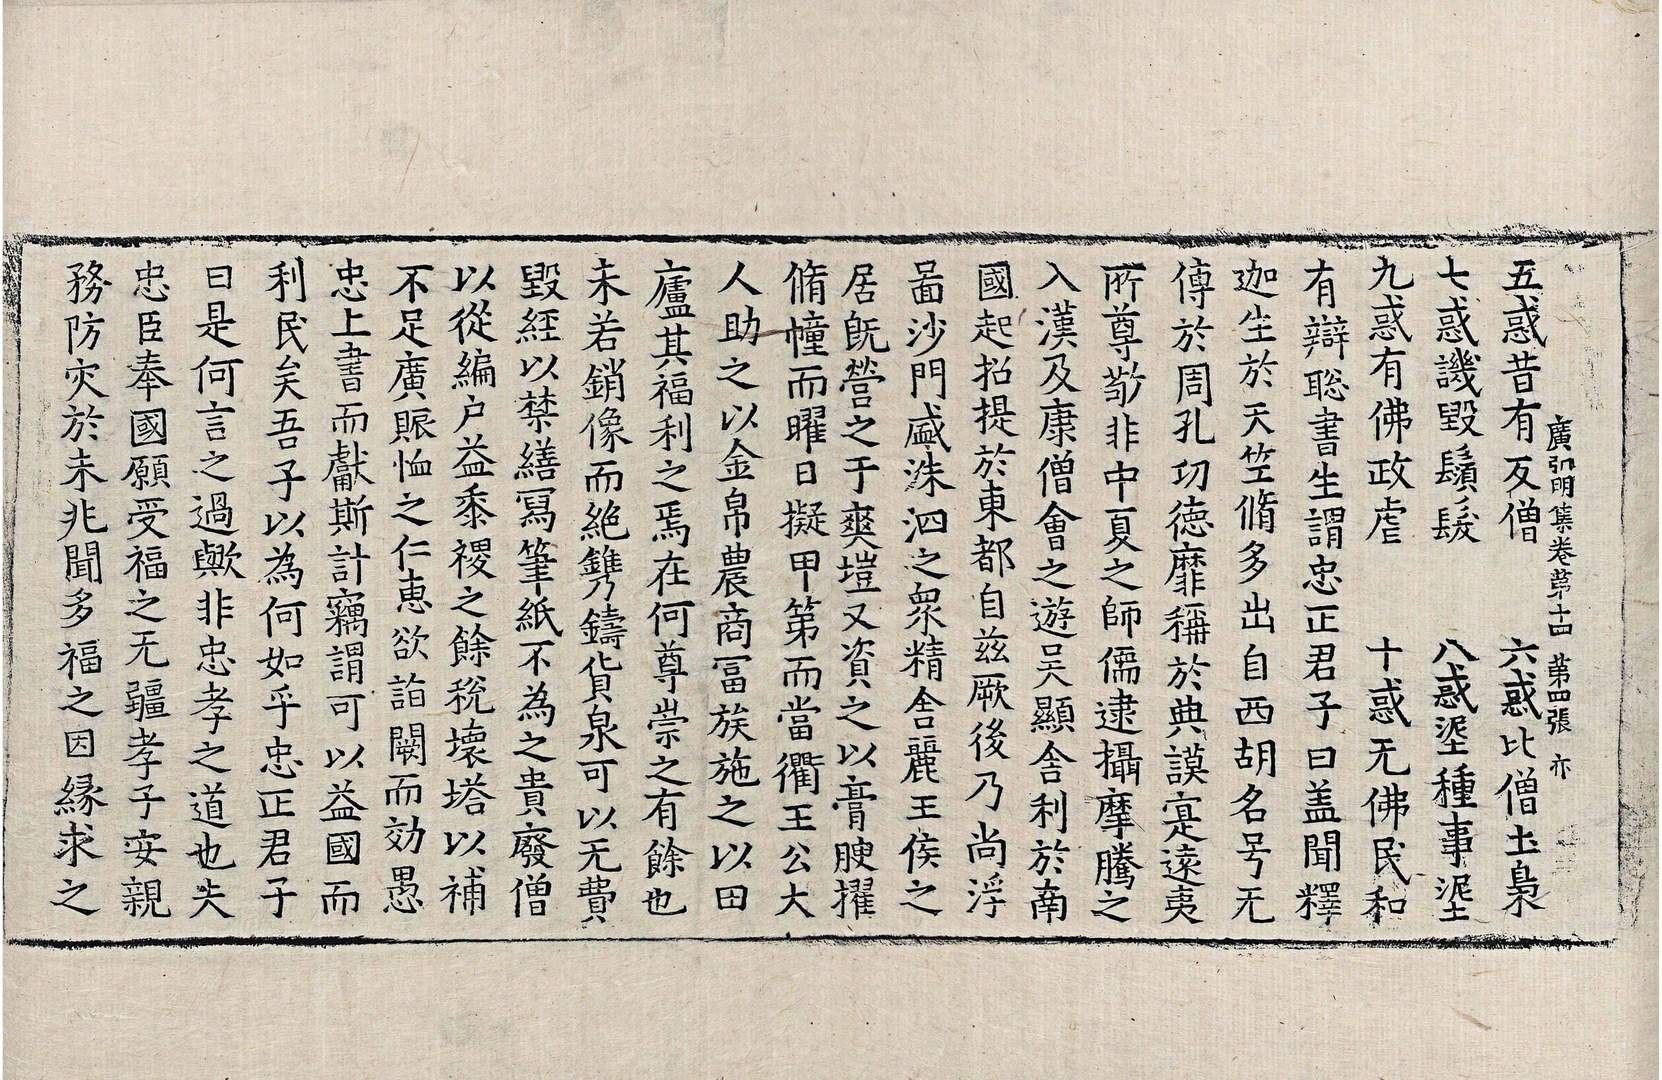 廣弘明集卷苐十四 苐四張 亦
五惑昔有反僧 六惑比僧土梟
七惑譏毀鬚髮 八惑埿種事泥埿
九惑有佛政虐 十惑无佛民和
有辯聡書生謂忠正君子曰盖聞釋
迦生於天竺脩多出自西胡名号无
傳於周孔功德靡稱於典謨寔遠夷
所尊敬非中夏之師儒逮攝摩騰之
入漢及康僧會之遊吴顯舍利於南
國起招提於東都自兹厥後乃尚浮
啚沙門盛洙泗之衆精舍麗王侯之
居旣營之于爽塏又資之以膏腴擢
脩幢而曜日擬甲第而當衢王公大
人助之以金帛農商冨族施之以田
廬其福利之焉在何尊崇之有餘也
未若銷像而絶鐫鑄貨泉可以无費
毀經以禁繕冩筆紙不為之貴廢僧
以從編户益黍稷之餘稅壞塔以補
不足廣賑恤之仁恵欲詣闕而効愚
忠上書而獻斯計竊謂可以益國而
利民矣吾子以為何如乎忠正君子
曰是何言之過歟非忠孝之道也夫
忠臣奉國願受福之无疆孝子安親
務防灾於未兆聞多福之因緣求之